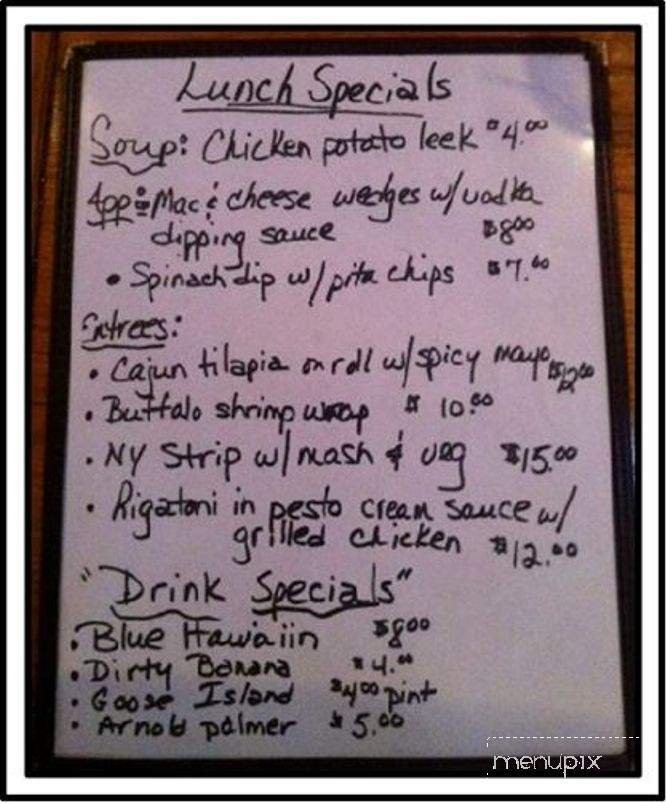 Lunch Specials
Soup: Chicken potato leek $4.00
App: Mac & cheese wedges w/ vodka
dipping sauce $8.00
• Spinach dip w/ pita chips $7.00
Entrees:
• Cajun tilapia on roll w/ spicy mayo $12.00
• Buffalo shrimp wrap $10.00
• NY Strip w/ mash & veg $15.00
• Rigatoni in pesto cream sauce w/
grilled chicken $12.00
"Drink Specials"
• Blue Hawaiin $8.00
• Dirty Banana $4.00
• Goose Island $4.00 pint
• Arnold palmer $5.00
menupix